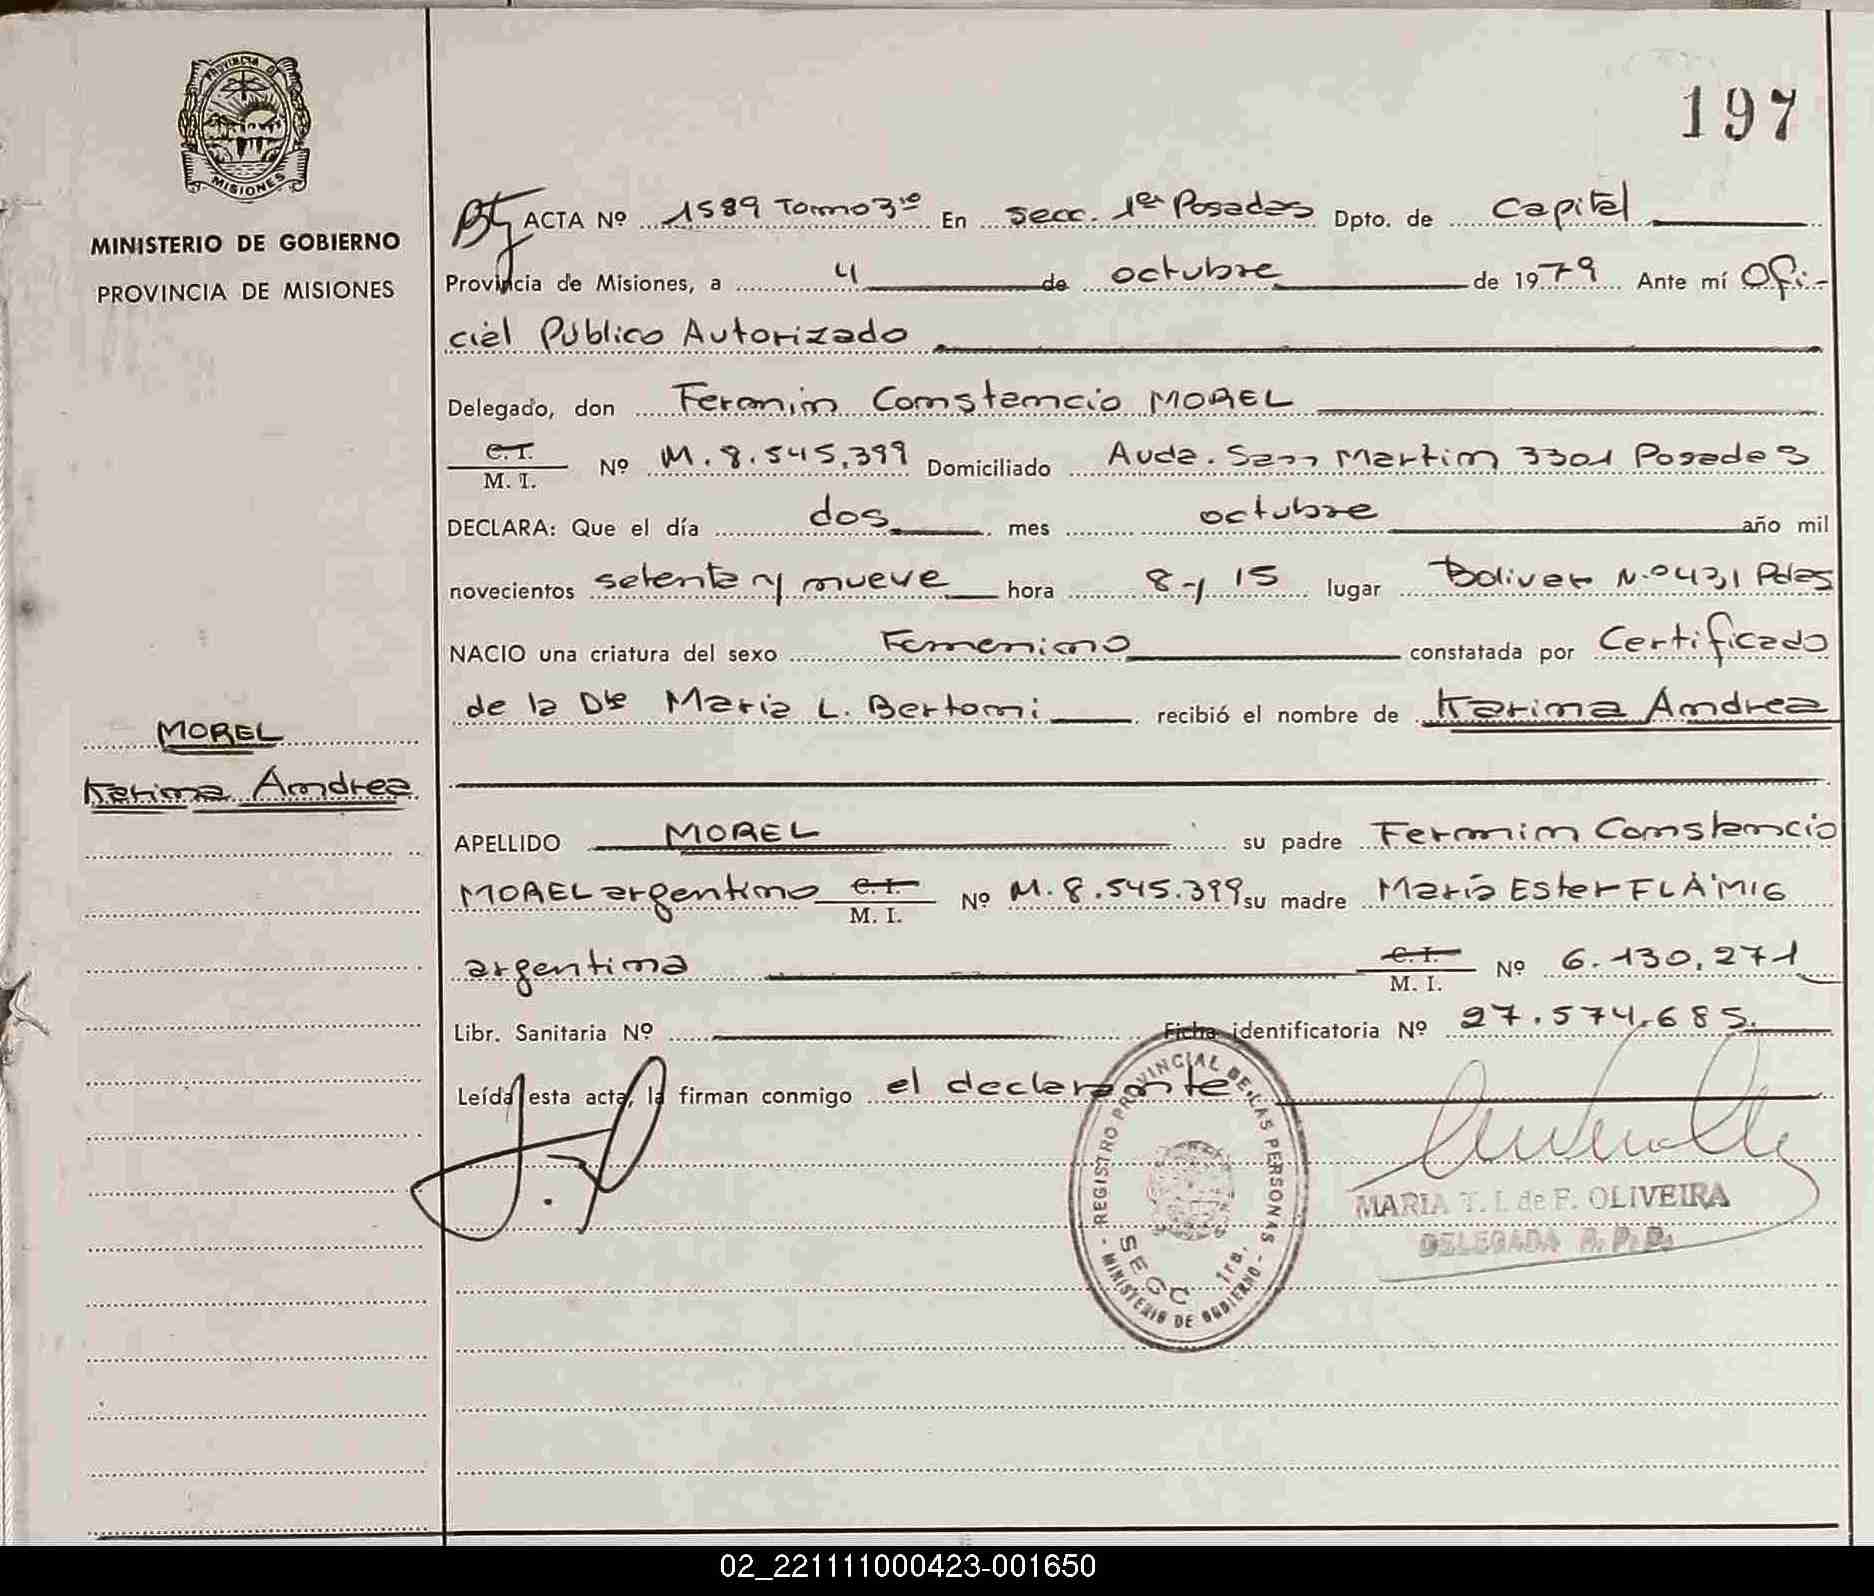 197
PROVINCIA DE
MISIONES
MINISTERIO DE GOBIERNO
PROVINCIA DE MISIONES
ACTA Nº 1589 Tomo 3ro En secc. 1ea Posadas Dpto. de Capital
Provincia de Misiones, a 4 de octubre de 1979 Ante mí Ofi-
cial Público Autorizado
Delegado, don Fermin Constancio MOREL
C.I.
M. I. Nº M. 8.545.399 Domiciliado Avda. San Martin 3301 Posadas
DECLARA: Que el día dos mes octubre año mil
novecientos setenta y nueve hora 8 y 15 lugar Bolivar N.º 431 Pdas
NACIO una criatura del sexo Femenino constatada por Certificado
de la Dte Maria L. Bertoni recibió el nombre de Karina Andrea
MOREL
Karina Andrea
APELLIDO MOREL su padre Fermin Constancio
MOREL argentino C.I.
M. I. Nº M. 8.545.399 su madre María Ester FLAMIG
argentina C.I.
M. I. Nº 6.130.271
Libr. Sanitaria Nº Ficha identificatoria Nº 27.574.685.
Leída esta acta, la firman conmigo el declarante.
REGISTRO PROVINCIAL DE LAS PERSONAS
SECC 1ra.
MINISTERIO DE GOBIERNO
MARIA T. I. de F. OLIVEIRA
DELEGADA R. P. P.
02_221111000423-001650